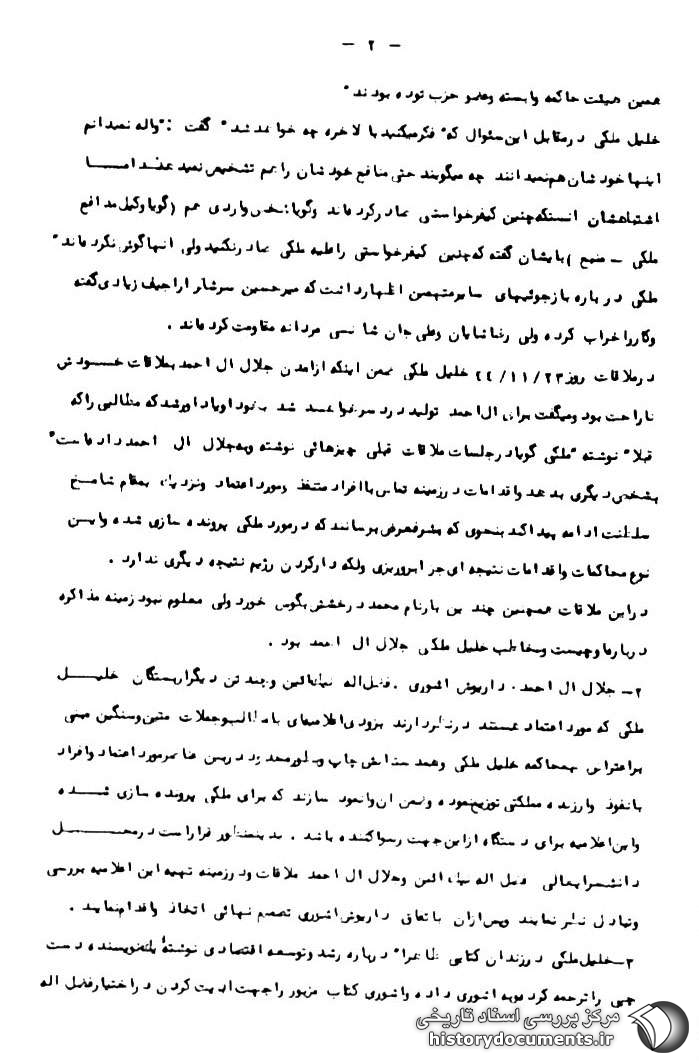 - ۲ -
همین هیئت حاکمه وابسته وعضو حزب توده بودند"
خلیل ملکی درمقابل این سئوال که" فکرمیکنید بالاخره چه خواهد شد" گفت :"واله نمیدانم
اینها خودشان هم نمیدانند چه میگویند حتی منافع خودشان راهم تشخیص نمیدهند امـا
اشتباهشان اینستکه چنین کیفرخواستی صادرکرده اند وگویا شخص واردی هم (گویا وکیل مدافع
ملکی - ) بایشان گفته که چنین کیفرخواستی راعلیه ملکی صادرنکنید ولی آنها گوش نکرده اند"
ملکی درباره بازجوئیهای سایرمتهمین اظهارداشت که میرحسین سرشار اراجیف زیادی گفته
وکارراخراب کرده ولی رضاشایان وعلی جان شانسی مردانه مقاومت کرده اند .
درملاقات روز ۴۴/۱۱/۲۳ خلیل ملکی ضمن اینکه ازآمدن جلال ال احمد بملاقات خــودش
ناراحت بود ومیگفت برای ال احمد تولید دردسرخواهد شد باو یادآورشد که مطالبی راکه
قبلا" نوشته "ملکی گویا درجلسات ملاقات قبلی چیزهائی نوشته وبه جلال ال احمد داده است"
بشخص دیگری بدهد واقدامات درزمینه تماس باافراد متنفذ ومورد اعتماد ونزدیک بمقام شامـخ
سلطنت ادامه پیداکند بنحوی که بشرفعرض برسانند که درمورد ملکی پرونده سازی شده وایـن
نوع محاکمات واقدامات نتیجه ای جز ابروریزی ولکه دارکردن رژیم نتیجه دیگری ندارد .
دراین ملاقات همچنین چندین بارنام محمد درخشش بگوش خورد ولی معلوم نبود زمینه مذاکره
درباره او چیست ومخاطب خلیل ملکی جلال ال احمد بود .
۲- جلال ال احمد، داریوش اشوری .فضل اله وچند تن دیگراز بستگان خلیـــل
ملکی که مورد اعتماد هستند درنظردارند بزودی اعلامیه ای بامطالب وجملات متین وسنگین مبنی
براعتراض به محاکمه خلیل ملکی وهمدستانش چاپ وبطورمحدود دربین عناصرمورد اعتماد وافراد
بانفوذ وارزنده مملکتی توزیع نموده وضمن آن وانمود سازند که برای ملکی پرونده سازی شـــده
واین اعلامیه برای دستگاه ازاین جهت رسواکننده باشد . بدینمنظور قراراست درمحــــل
دانشسرایعالی فضل اله وجلال ال احمد ملاقات ودرزمینه تهیه این اعلامیه بررسی
وتبادل نظر نمایند وپس ازآن باتفاق داریوش اشوری تصمیم نهائی اتخاذ واقدام نمایند .
۳- خلیل ملکی درزندان کتابی ظاهرا" درباره رشد وتوسعه اقتصادی نوشتهٔ یک نویسنده دست
چپی راترجمه کرده وبه اشوری داده واشوری کتاب مزبور راجهت ادیت کردن دراختیار فضل اله
مرکز بررسی اسناد تاریخی
historydocuments.ir